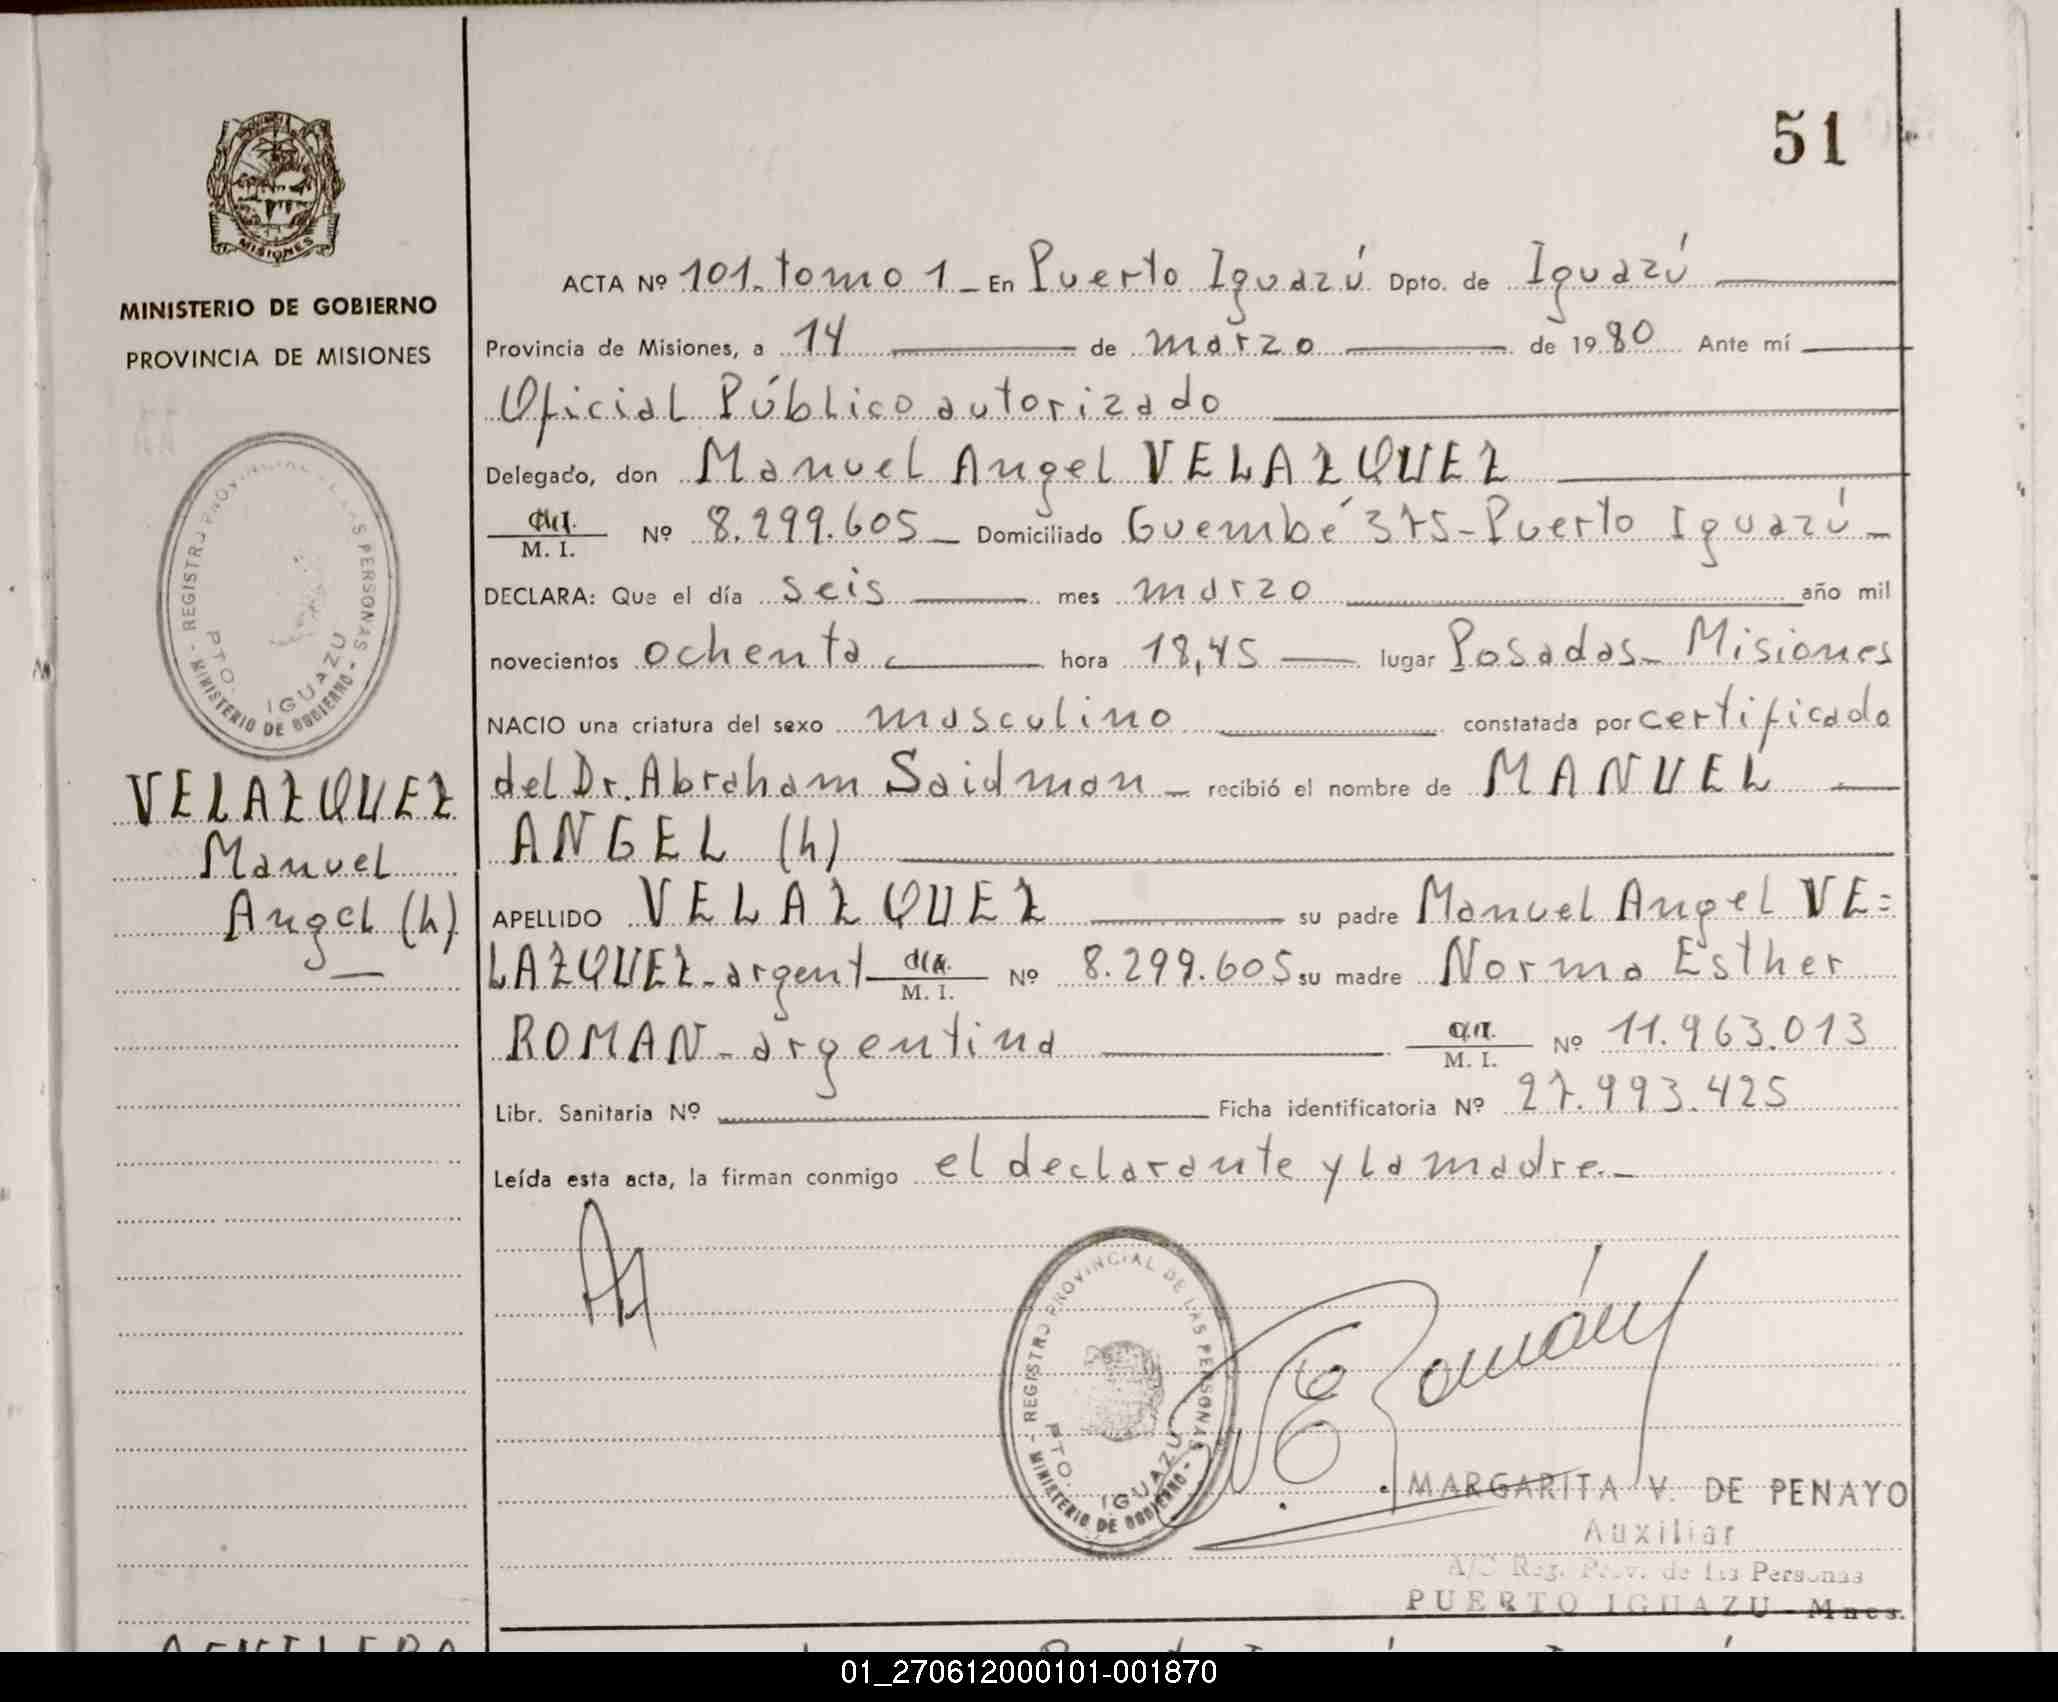 51
MISIONES
MINISTERIO DE GOBIERNO
PROVINCIA DE MISIONES
- REGISTRO PROVINCIAL DE LAS PERSONAS -
PTO. IGUAZU
MINISTERIO DE GOBIERNO
VELAZQUEZ
Manuel
Angel (h)
ACTA Nº 101. tomo 1 - En Puerto Iguazú Dpto. de Iguazú
Provincia de Misiones, a 14 de marzo de 1980 Ante mí
Oficial Público autorizado
Delegado, don Manuel Angel VELAZQUEZ
M. I. Nº 8.299.605 - Domiciliado Guembé 375 - Puerto Iguazú -
DECLARA: Que el día seis mes marzo año mil
novecientos ochenta hora 18,45 lugar Posadas - Misiones
NACIO una criatura del sexo masculino constatada por certificado
del Dr. Abraham Saidman - recibió el nombre de MANUEL
ANGEL (h)
APELLIDO VELAZQUEZ su padre Manuel Angel VE=
LAZQUEZ - argent M. I. Nº 8.299.605 su madre Norma Esther
ROMAN - argentina M. I. Nº 11.963.013
Libr. Sanitaria Nº Ficha identificatoria Nº 27.993.425
Leída esta acta, la firman conmigo el declarante y la madre. -
- REGISTRO PROVINCIAL DE LAS PERSONAS -
PTO. IGUAZU
MINISTERIO DE GOBIERNO
NERomán
MARGARITA V. DE PENAYO
Auxiliar
A/C Reg. Prov. de las Personas
PUERTO IGUAZU - Mnes.
01_270612000101-001870